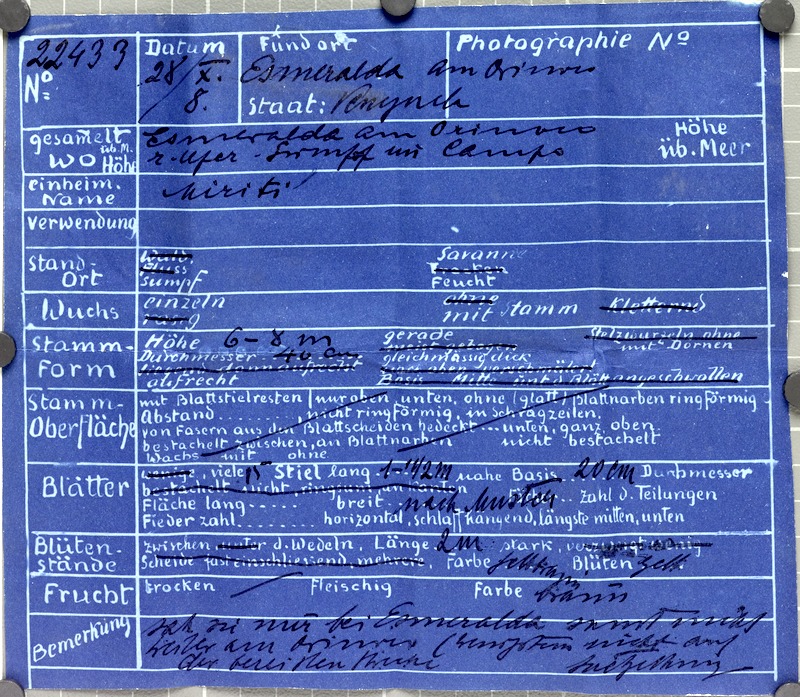 22433 Datum Fundort Photographie No
No 28/X. Esmeralda am Orinoco
8. Staat:
gesamelt Esmeralda am Orinoco Höhe
wo üb.M. Höhe r. Ufer - Sumpf im Campo üb. Meer
einheim. Name Miriti
Verwendung
Stand- Wald. Savanne
Ort Fluss Trocken
Sumpf Feucht
Wuchs einzeln ohne
rasig mit Stamm Kletternd
Stamm- Höhe 6-8 m gerade Stelzwurzeln ohne
Form Durchmesser 40 cm gleichmässig dick mit Dornen
aufrecht Basis Mitte angeschwollen
Stamm- mit Blattstielresten nur oben, unten, ohne (glatt) Blattnarben ringförmig
Oberfläche Abstand ........, nicht ringförmig, in Schrägzeilen.
von Fasern aus den Blattscheiden bedeckt ... unten, ganz, oben.
bestachelt zwischen, an Blattnarben nicht bestachelt
Wachs mit ohne
Blätter wenige, viele 15 Stiel lang 1-1½ m nahe Basis 20 cm Durchmesser
bestachelt nicht
Fläche lang ...... breit nach Muster ... zahl d. Teilungen
Fieder zahl ........ horizontal, schlaff hängend, längste mitten, unten
Blüten- zwischen unter d. Wedeln, Länge 2m stark,
stände Scheide fast einschliessend, mehrere, Farbe Blüten gelb
Frucht trocken Fleischig Farbe braun
Bemerkung sah sie nur bei Esmeralda sonst nicht
weiter am Orinoco (wenigstens nicht auf
der bereisten Strecke